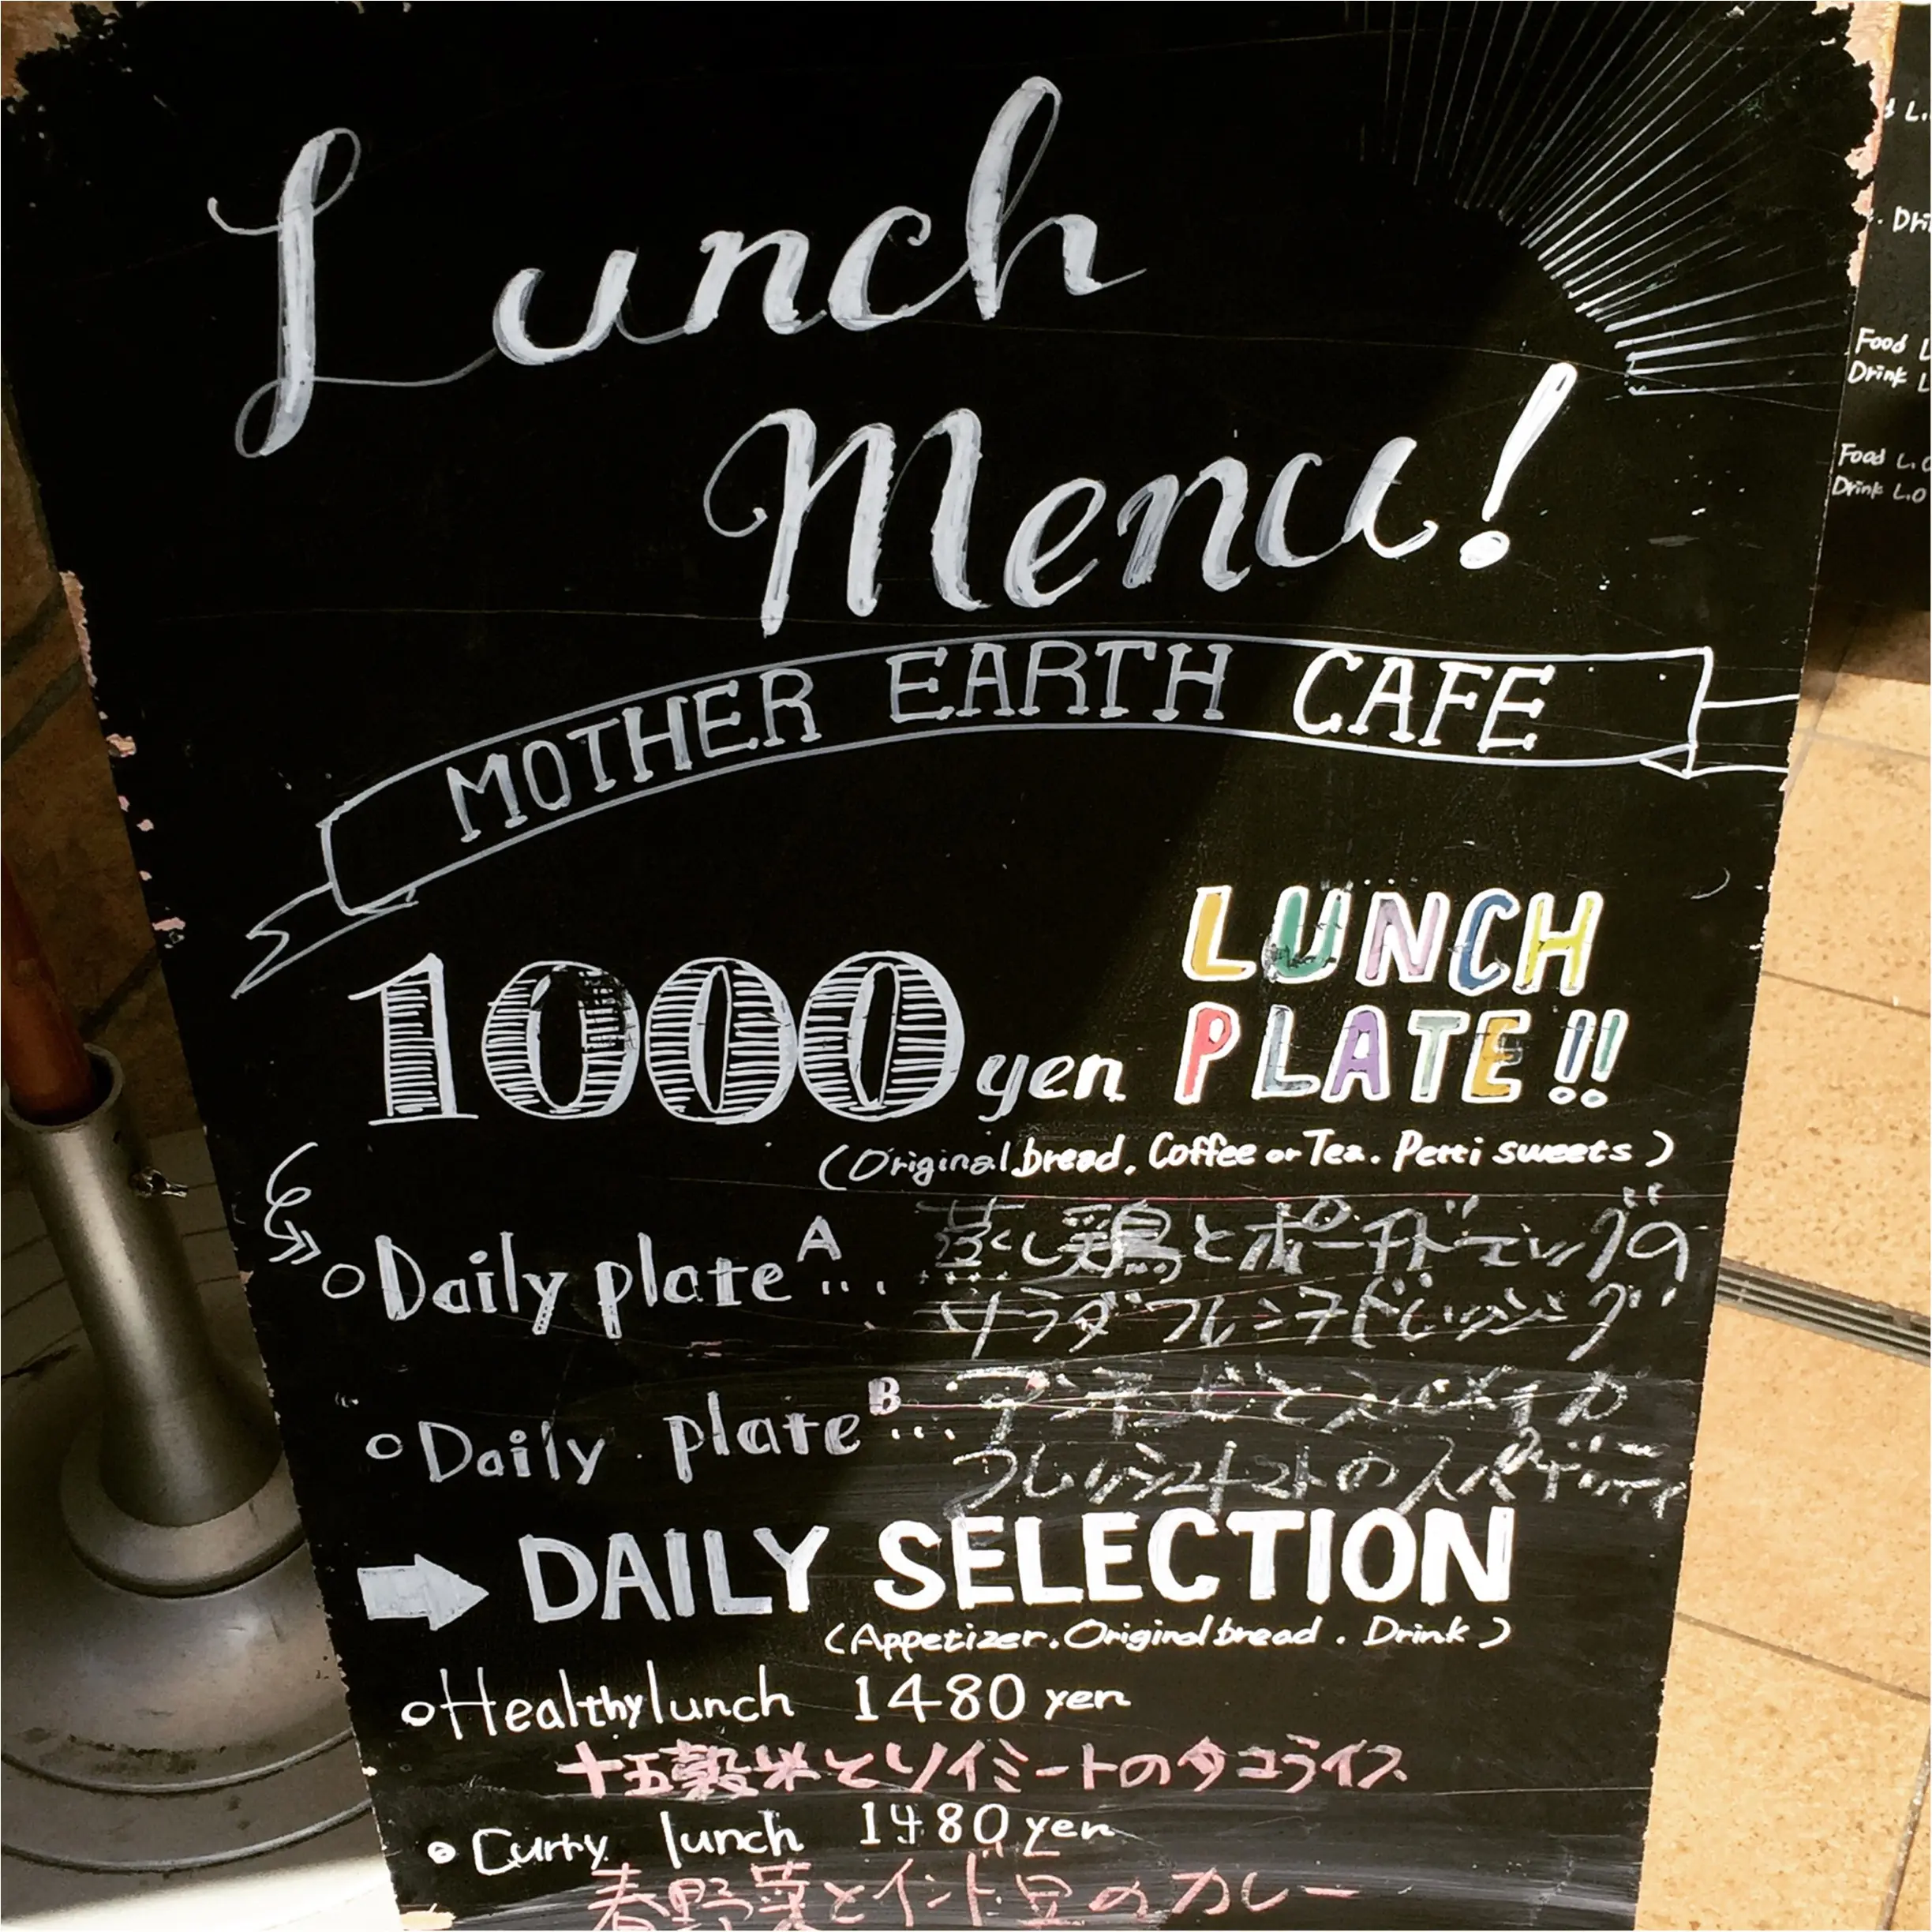 Lunch
Menu!
MOTHER EARTH CAFE
1000 yen
LUNCH
PLATE!!
(Original bread. Coffee or Tea. Petti sweets)
○Daily plate A ... 蒸し鶏とポーチドエッグの
サラダ フレンチドレッシング
○Daily plate B ... アンチョビと
フレッシュトマトのスパゲッティ
➡ DAILY SELECTION
(Appetizer. Original bread. Drink)
○Healthy lunch 1480 yen
十五穀米とソイミートのタコライス
○Curry lunch 1480 yen
春野菜とインド豆のカレー
Food L
Drink L
Food L.O
Drink L.O